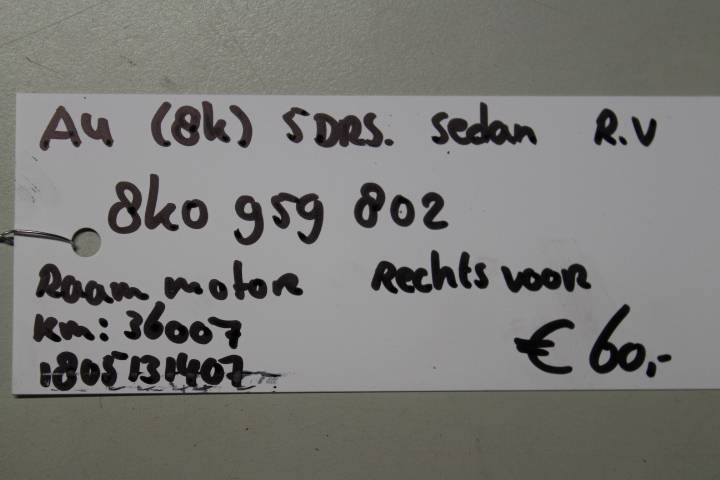 A4 (8k) 5DRS. Sedan R.V
8k0 959 802
Raam motor Rechts voor
km: 36007
1805131407
€ 60,-